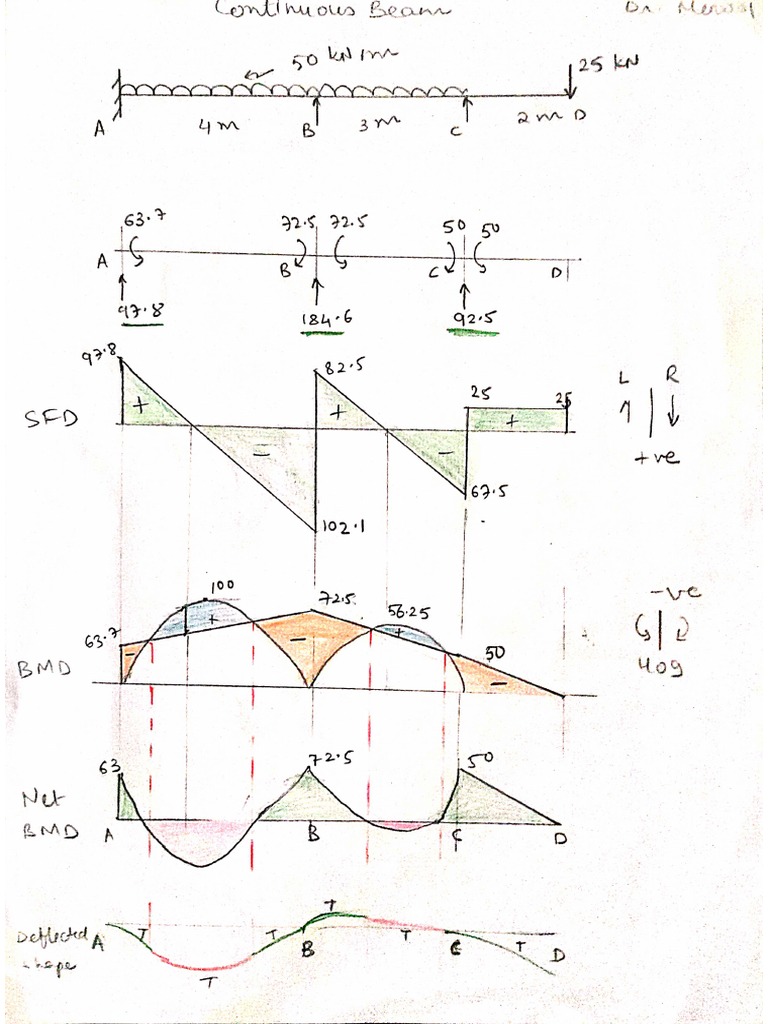 Continuous Beam
Dr.
50 kN/m
25 kN
A 4m B 3m C 2m D
63.7 72.5 72.5 50 50
A B C D
97.8 184.6 92.5
97.8 82.5 25 25 L R
SFD + - + - + +ve
102.1 67.5
63.7 100 72.5 56.25 50 -ve
BMD - + - + - Hog
63 72.5 50
Net
BMD A B C D
Deflected A T T T B T T C T D
shape